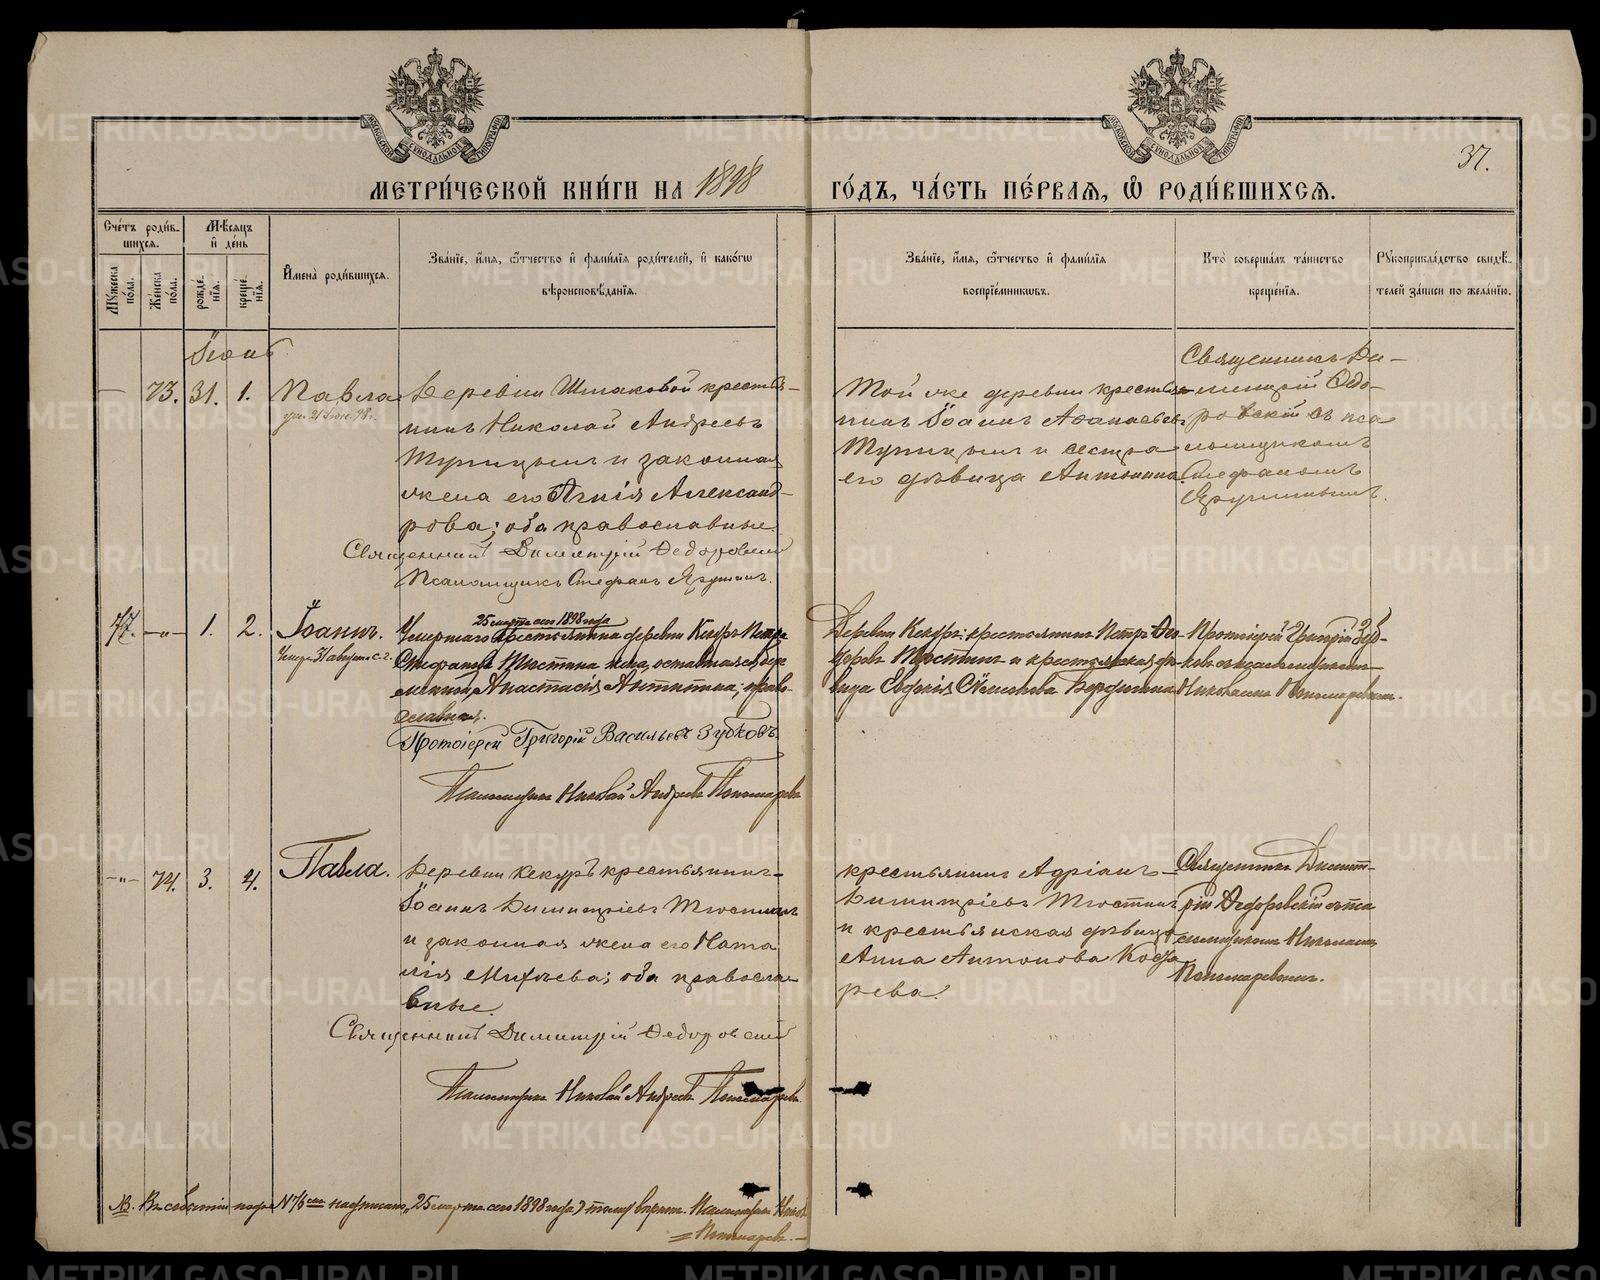 МОСКОВСКОЙ СѴНОДАЛЬНОЙ ТИПОГРАФІИ
МОСКОВСКОЙ СѴНОДАЛЬНОЙ ТИПОГРАФІИ
37.
МЕТРИ́ЧЕСКОЙ КНИ́ГИ НА 1898 ГО́ДЪ, ЧА́СТЬ ПЕ́РВАЯ, Ѡ РОДИ́ВШИХСЯ.
Сче́тъ роди́в-
шихся.
Му́жеска по́ла.
Же́нска по́ла.
Мѣ́сяцъ
и де́нь
рожде́нія.
креще́нія.
Имена̀ роди́вшихся.
Зва́ніе, и́мя, ѻ́тчество и фами́лія роди́телей, и како́гѡ
вѣроисповѣ́данія.
Зва́ніе, и́мя, ѻ́тчество и фами́лія
воспріе́мниковъ.
Кто̀ соверша́лъ та́инство
креще́нія.
Рукоприкла́дство свидѣ́-
телей за́писи по жела́нію.
Іюнь
— 73. 31. 1. Павла
ум. 21 98 г.
Деревни Шмаковой крестья-
нинъ Николай Андреевъ
Турицынъ и законная
жена его Агнія Александ-
рова; оба православные.
Священникъ Димитрій Федоровскій
Псаломщикъ Стефанъ Ярушинъ.
Той же деревни крестья-
нинъ Іоаннъ Афанасьевъ
Турицынъ и сестра
его дѣвица Антонина.
Священникъ Ди-
митрій Федо-
ровскій съ пса
ломщикомъ
Стефаномъ
Ярушинымъ.
77. —„— 1. 2. Іоаннъ.
Умеръ 31 августа с. г.
25 марта сего 1898 года
Умершаго крестьянина деревни Кекуръ Петра
Стефанова Тюстина жена, оставшаяся бере
менной Анастасія Антипина; право-
славная.
Протоіерей Григорій Васильевъ Зубковъ.
Псаломщикъ Николай Андреевъ Пономаревъ
Деревни Кекуръ: крестьянинъ Петръ Фео-
доровъ Тюстинъ и крестьянская дѣ-
вица Евфимія
Протоіерей Григорій Зуб-
ковъ съ псаломщикомъ
Николаемъ Пономаревымъ.
—„— 74. 3. 4. Павла.
Деревни Кекуръ крестьянинъ
Іоаннъ Димитріевъ Тюстинъ
и законная жена его Ната
лія Михѣева; оба православ-
вные.
Священникъ Димитрій Федоровскій
Псаломщикъ Николай Андреевъ Пономаревъ
крестьянинъ Адріанъ
Димитріевъ Тюстинъ
и крестьянская дѣвица
Анна Антонова Кост
рева.
Священникъ Димит-
рій Федоровскій съ пса
ломщикомъ Николаемъ
Пономаревымъ.
NB. 25 марта сего 1898 года) тому вѣрить. Псаломщикъ Никол.
Пономаревъ.—
METRIKI.GASO-URAL.RU